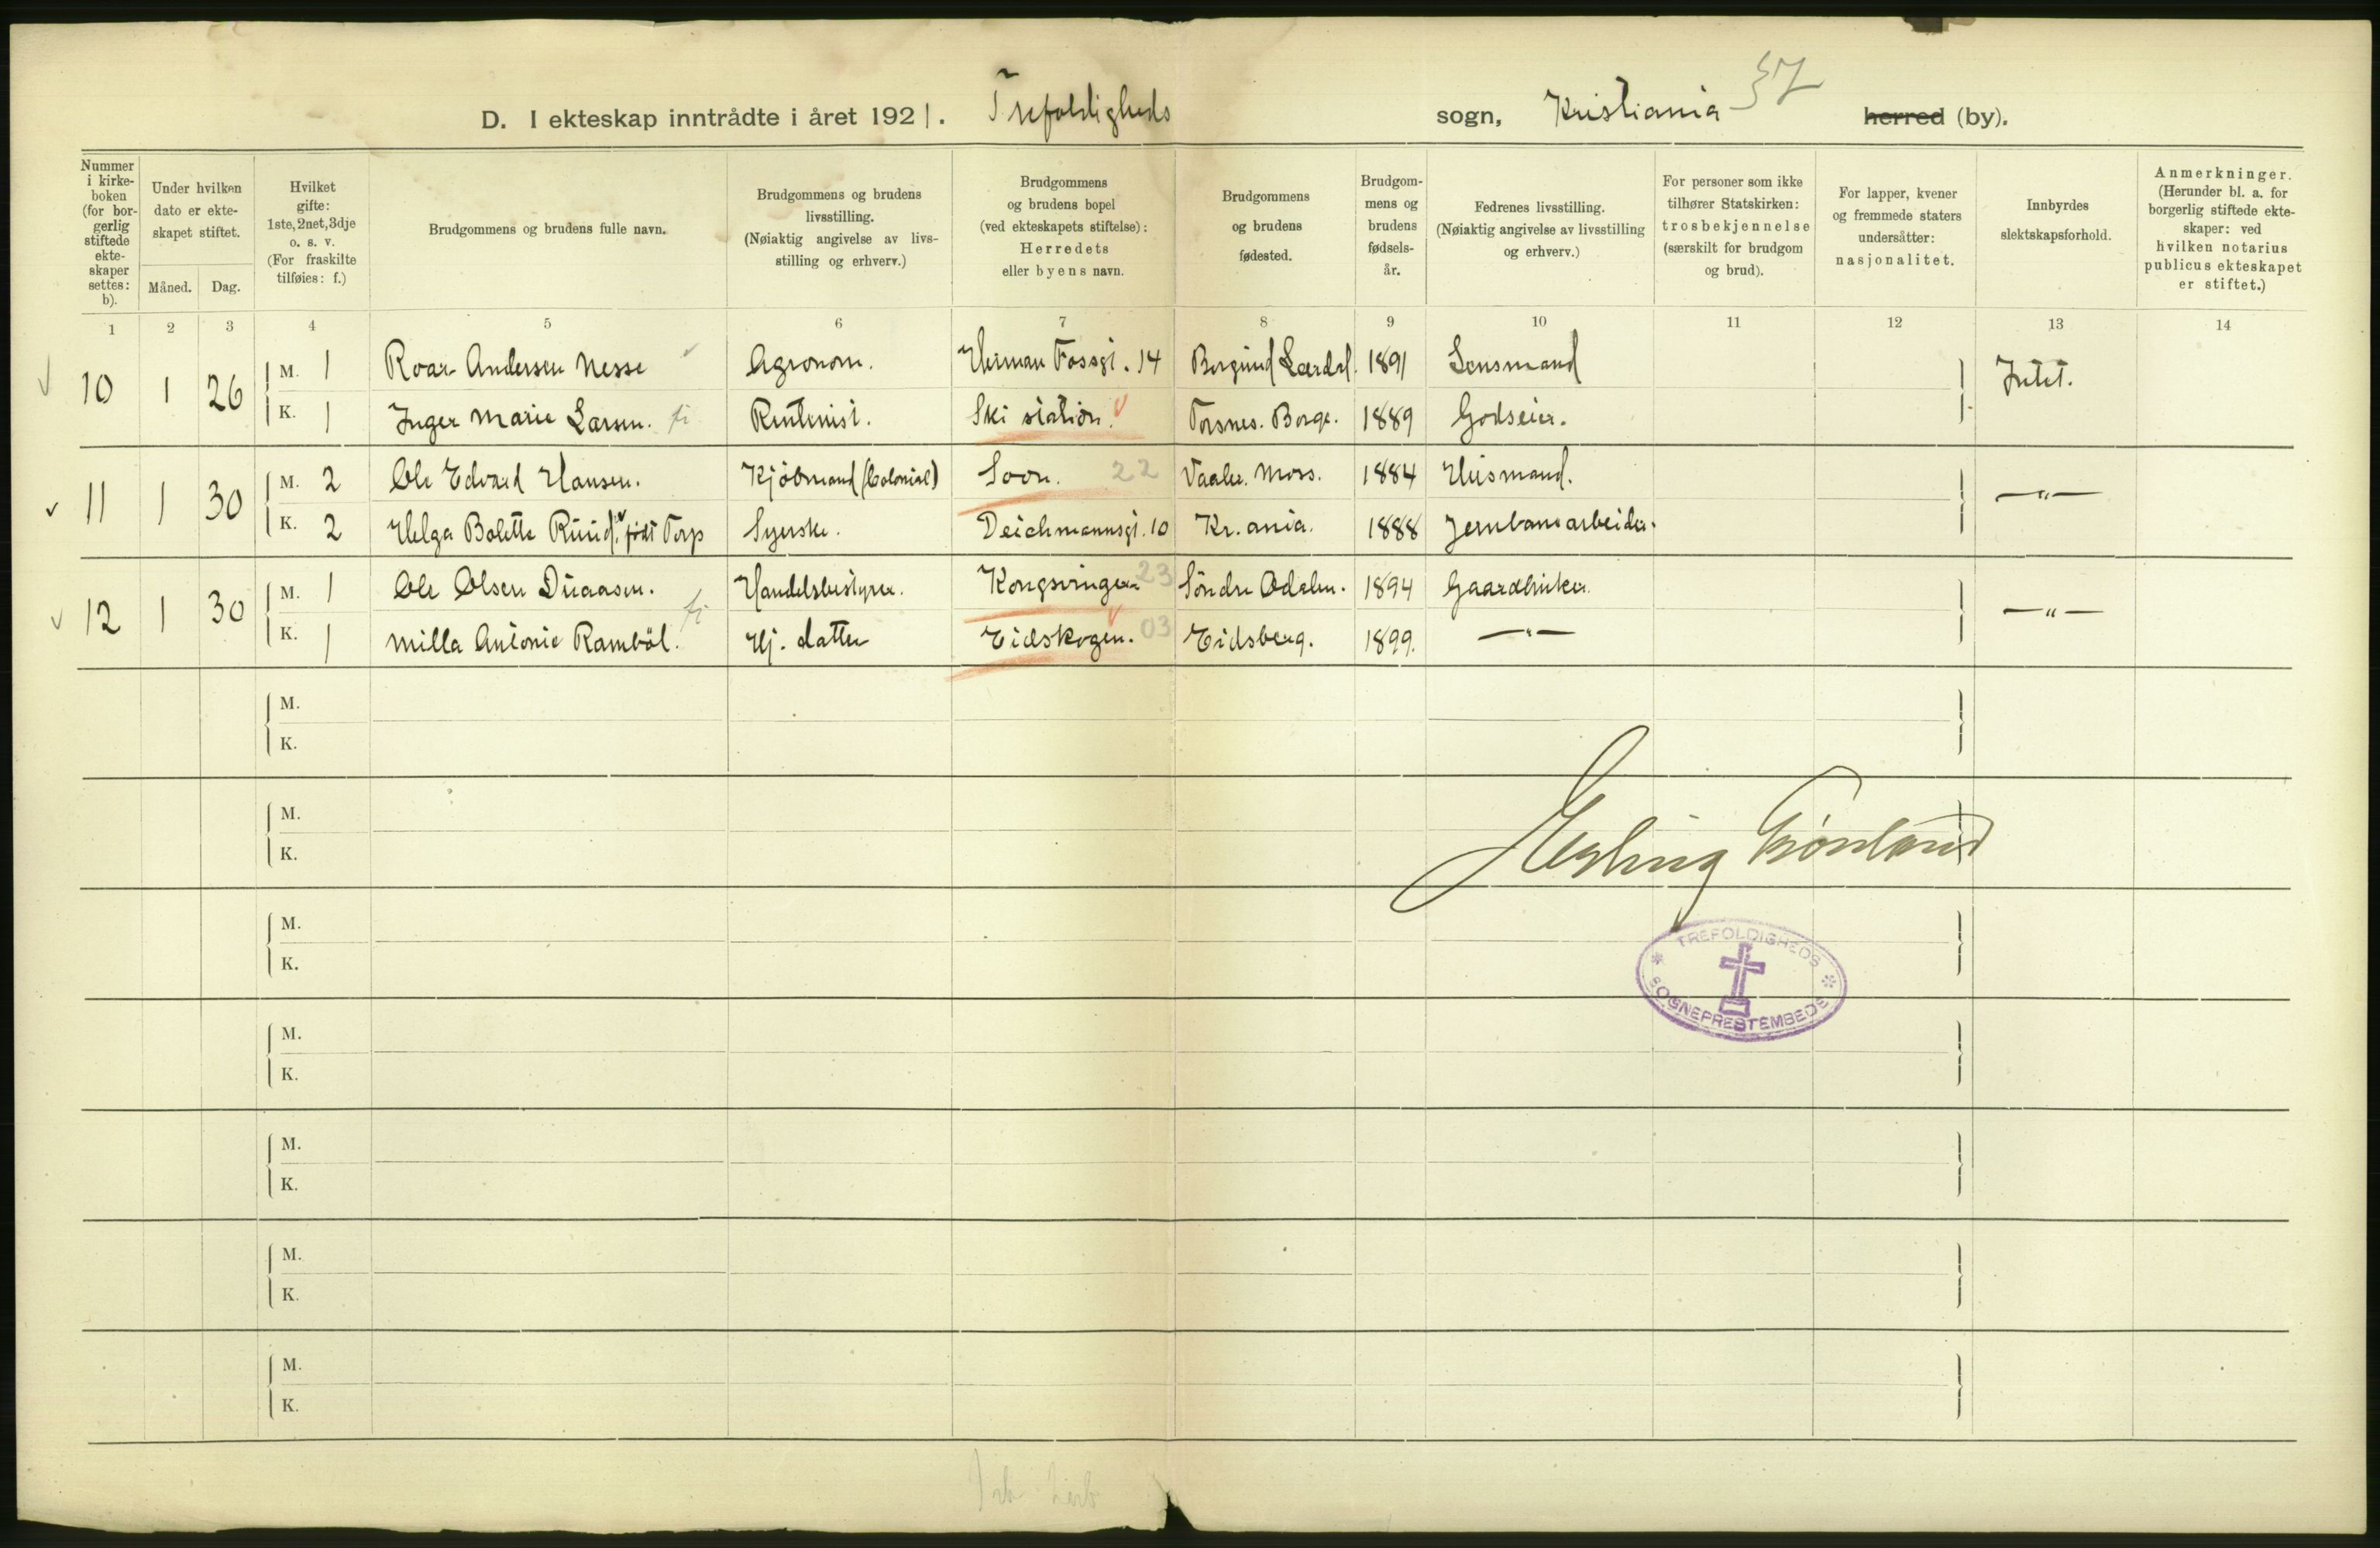 37
D. I ekteskap inntrådte i året 1921. Trefoldigheds sogn, Kristiania herred (by).
Nummer i kirke-boken (for bor-gerlig stiftede ekte-skaper settes: b).
Under hvilken dato er ekte-skapet stiftet.
Måned. Dag.
Hvilket gifte: 1ste, 2net, 3dje o. s. v. (For fraskilte tilføies: f.)
Brudgommens og brudens fulle navn.
Brudgommens og brudens livsstilling. (Nøiaktig angivelse av livs-stilling og erhverv.)
Brudgommens og brudens bopel (ved ekteskapets stiftelse): Herredets eller byens navn.
Brudgommens og brudens fødested.
Brudgom-mens og brudens fødsels-år.
Fedrenes livsstilling. (Nøiaktig angivelse av livsstilling og erhverv.)
For personer som ikke tilhører Statskirken: trosbekjennelse (særskilt for brudgom og brud).
For lapper, kvener og fremmede staters undersåtter: nasjonalitet.
Innbyrdes slektskapsforhold.
Anmerkninger. (Herunder bl. a. for borgerlig stiftede ekte-skaper: ved hvilken notarius publicus ekteskapet er stiftet.)
1 2 3 4 5 6 7 8 9 10 11 12 13 14
10 1 26 M. 1 Roar Andersen Nesse Agronom. Herman Fossgt. 14 Borgund Lærdal. 1891 Lensmand Intet.
K. 1 Inger Marie Larsen. fi Rentenist. Ski station. Torsnes. Borge. 1889 Godseier.
11 1 30 M. 2 Ole Edvard Hansen. Kjöbmand (Colonial) Soon. 22 Vaaler. Moss. 1884 Husmand. —"—
K. 2 Helga Bolette Ruud, født Torp Syerske. Deichmannsgt. 10 Kr.ania. 1888 Jernbanearbeider.
12 1 30 M. 1 Ole Olsen Duaasen. Handelsbestyrer. Kongsvinger 23 Söndre Odalen. 1894 Gaardbruker. —"—
K. 1 Milla Antonie Ramböl. fi Hj. datter Eidskogen. 03 Eidsberg. 1899. —"—
M.
K.
M.
K.
Erling Grönland
M.
K.
TREFOLDIGHEDS
SOGNEPRESTEMBEDE
M.
K.
M.
K.
M.
K.
M.
K.